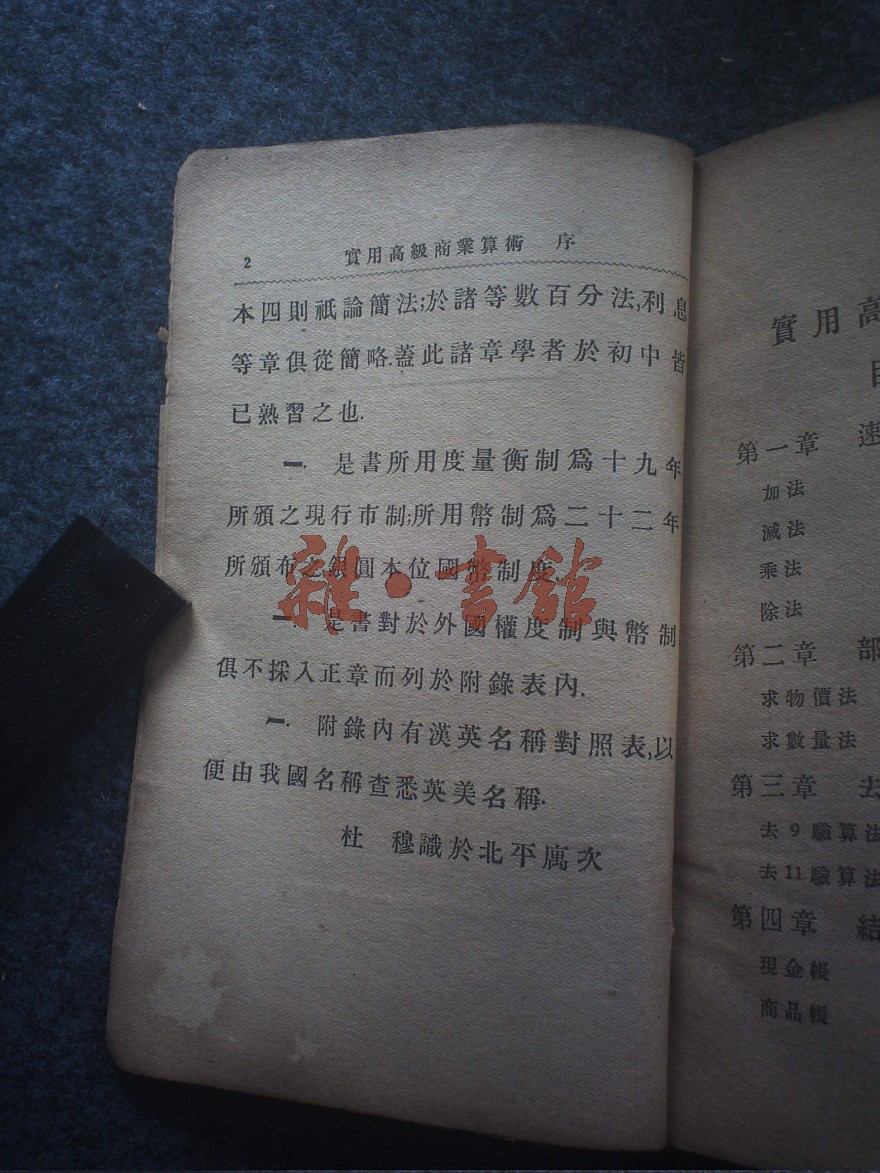 2 實用高級商業算術 序
本四則祇論簡法;於諸等數百分法,利息
等章俱從簡略.蓋此諸章學者於初中皆
已熟習之也.
一. 是書所用度量衡制爲十九年
所頒之現行市制;所用幣制爲二十二年
所頒布之銀圓本位國幣制度.
一. 是書對於外國權度制與幣制
俱不採入正章而列於附錄表內.
一. 附錄內有漢英名稱對照表,以
便由我國名稱查悉英美名稱.
杜 穆識於北平寓次
雜·書館
實用高
第一章 速
加法
減法
乘法
除法
第二章 部
求物價法
求數量法
第三章 去
去9驗算法
去11驗算法
第四章 結
現金帳
商品帳